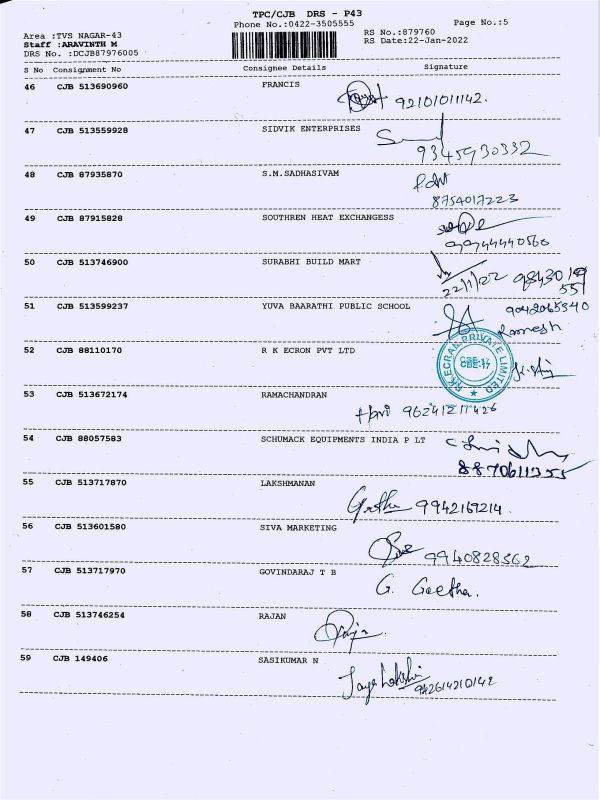 TPC/CJB DRS - P43
Phone No.:0422-3505555 Page No.:5
Area :TVS NAGAR-43 RS No.:879760
Staff :ARAVINTH M RS Date:22-Jan-2022
DRS No. :DCJB87976005
S No Consignment No Consignee Details Signature
46 CJB 513690960 FRANCIS
92101011142.
47 CJB 513559928 SIDVIK ENTERPRISES
9345930332
48 CJB 87935870 S.M.SADHASIVAM
8754017223
49 CJB 87915828 SOUTHREN HEAT EXCHANGESS
9944440560
50 CJB 513746900 SURABHI BUILD MART
22/1/22
51 CJB 513599237 YUVA BAARATHI PUBLIC SCHOOL 9042065340
Ramesh
52 CJB 88110170 R K ECRON PVT LTD
R.K.ECRAN PRIVATE LIMITED
CBE-17
53 CJB 513672174 RAMACHANDRAN
54 CJB 88057583 SCHUMACK EQUIPMENTS INDIA P LT
8870611355
55 CJB 513717870 LAKSHMANAN
Geetha 9942169214.
56 CJB 513601580 SIVA MARKETING
9940828362
57 CJB 513717970 GOVINDARAJ T B
G. Geetha.
58 CJB 513746254 RAJAN
Raja
59 CJB 149406 SASIKUMAR N
Jaya Lakshmi 942614210142